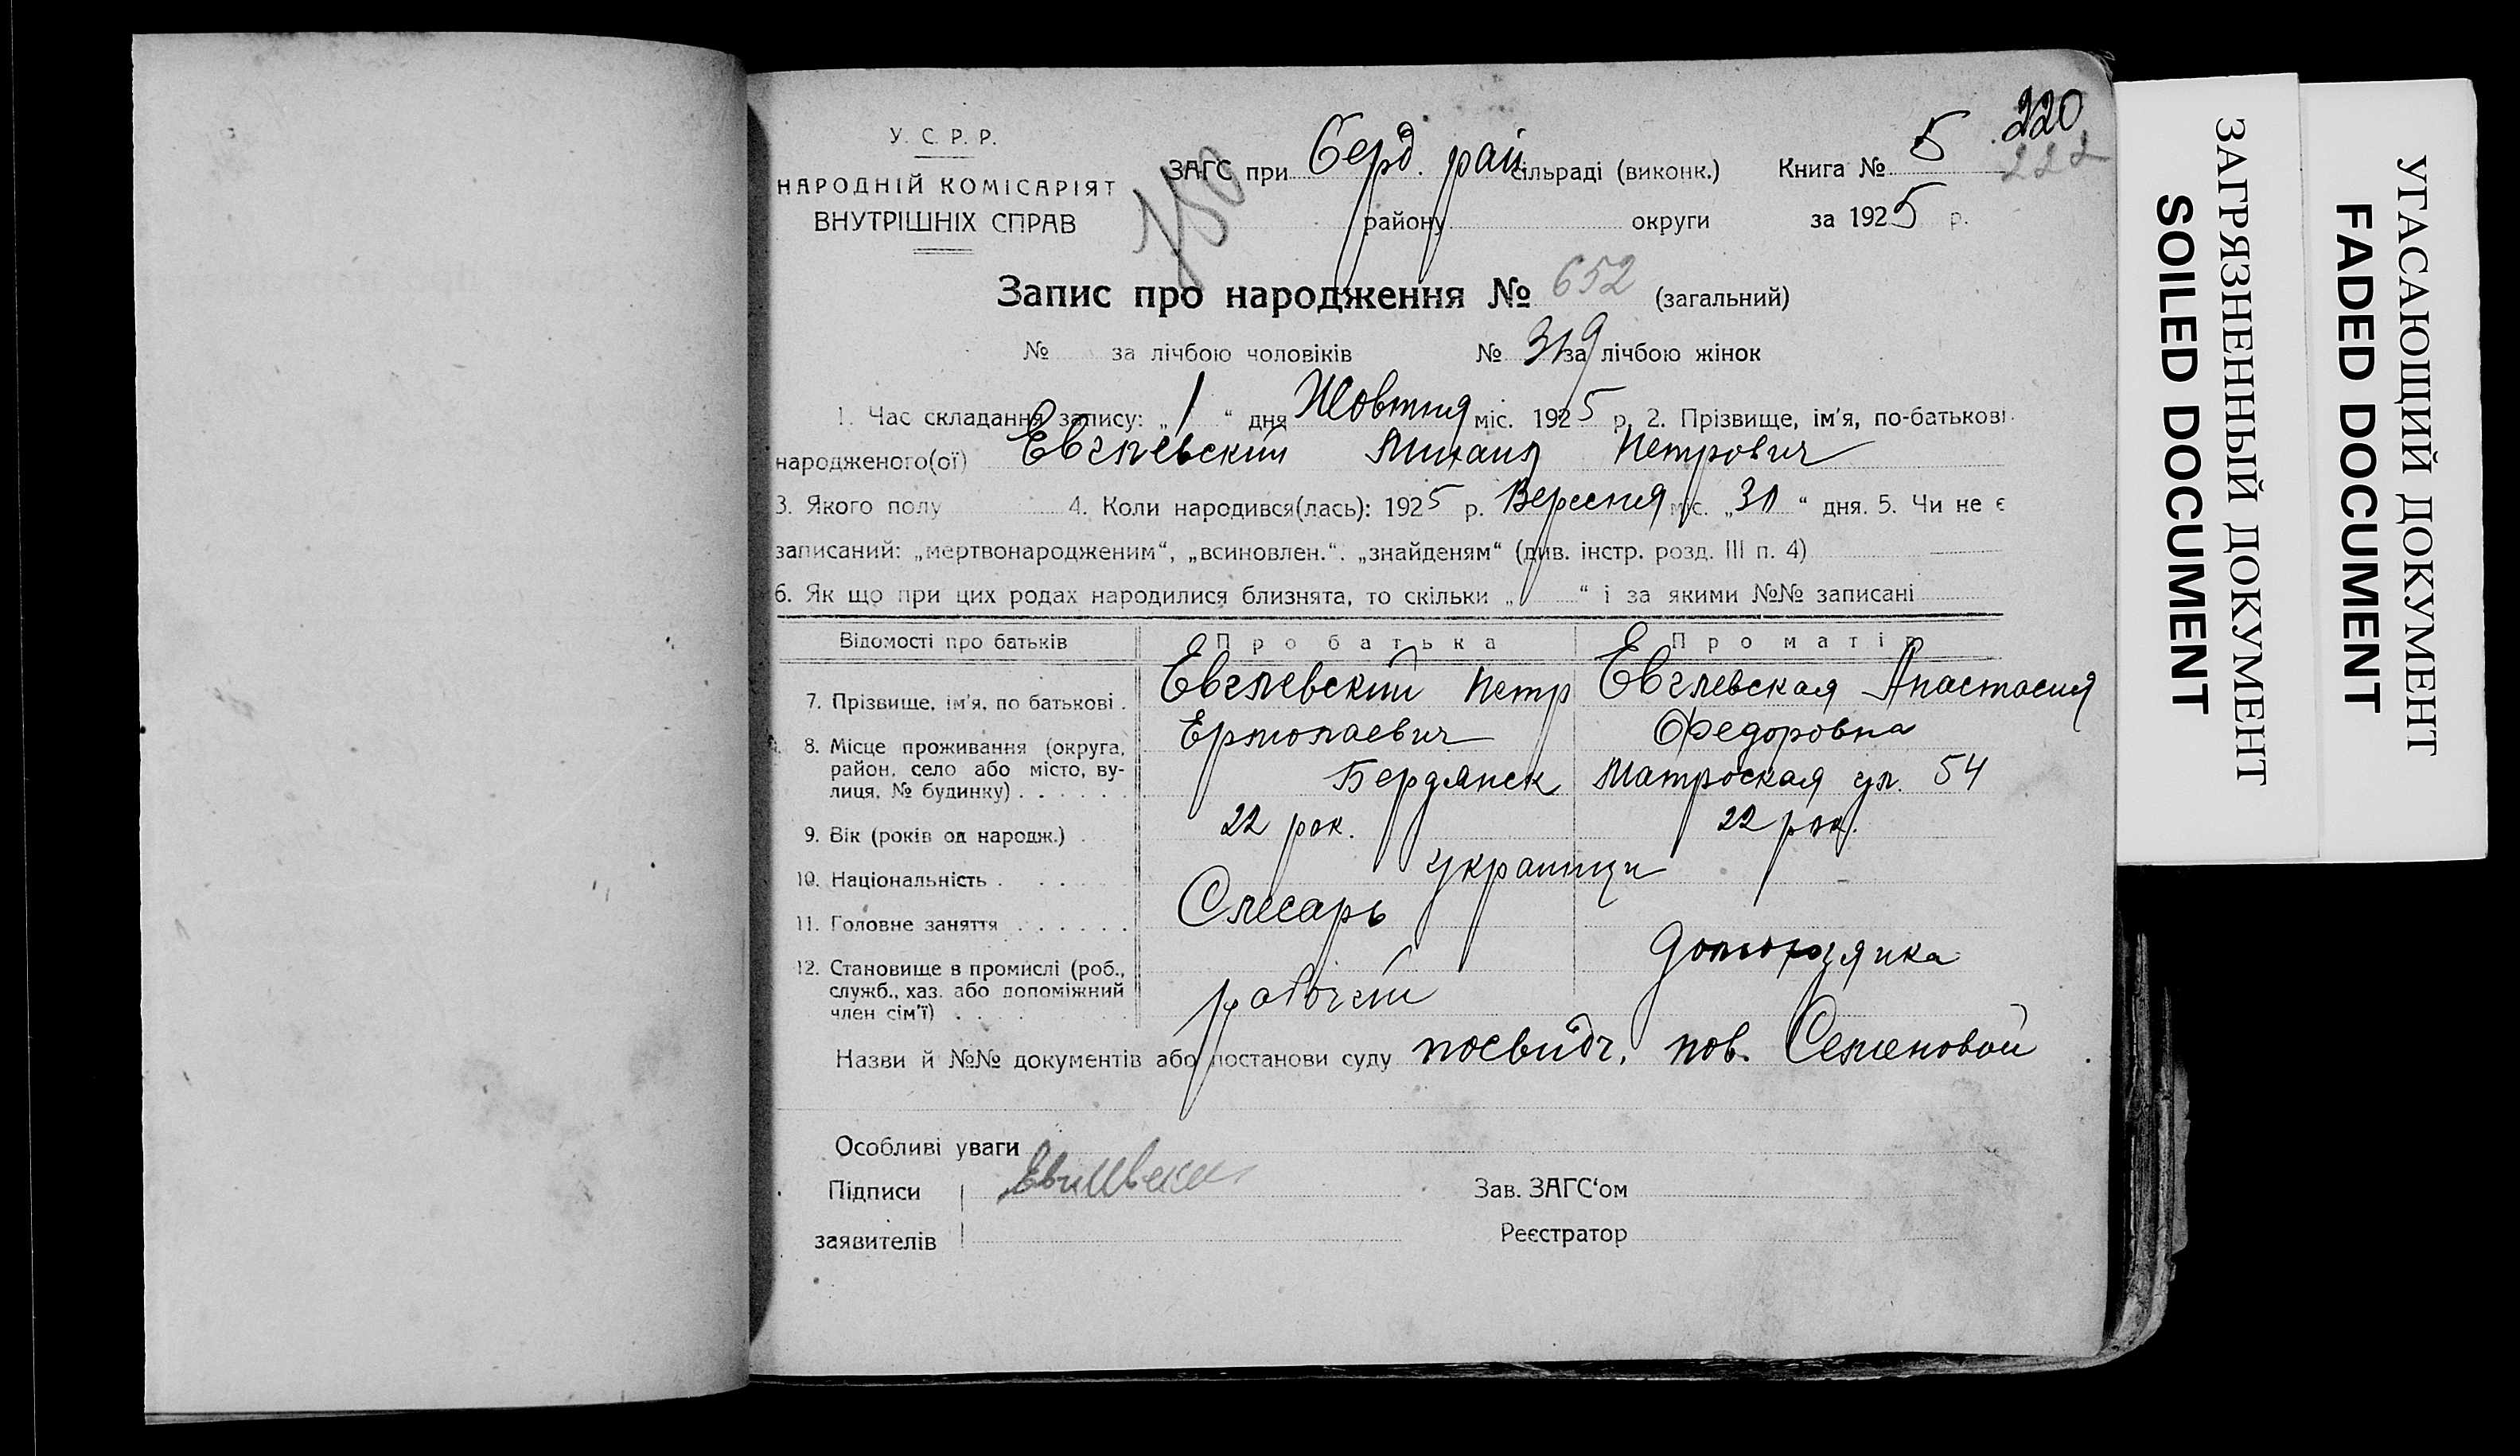 220
222
У. С. Р. Р.
НАРОДНІЙ КОМІСАРІЯТ
ВНУТРІШНІХ СПРАВ
ЗАГС при Берд. рай. сільраді (виконк.) Книга № 5
району округи за 1925 р.
Запис про народження № 652 (загальний)
№ за лічбою чоловіків № 319 за лічбою жінок
1. Час складання запису: „1“ дня Жовтня міс. 1925 р. 2. Прізвище, ім'я, по-батькові
народженого(ої) Евглевский Михаил Петрович
3. Якого полу 4. Коли народився(лась): 1925 р. Вересня міс. „30“ дня. 5. Чи не є
записаний: „мертвонародженим“, „всиновлен.“, „знайденям“ (див. інстр. розд. III п. 4)
6. Як що при цих родах народилися близнята, то скільки „ “ і за якими №№ записані
Відомості про батьків Про батька Про матір
7. Прізвище, ім'я, по батькові . Евглевский Петр Евглевская Анастасия
Ермолаевич Федоровна
8. Місце проживання (округа,
район, село або місто, ву-
лиця, № будинку) . . . . . . Бердянск Матроская ул. 54
9. Вік (років од народж.) . 22 рок. 22 рок.
10. Національність . . . . . українци
11. Головне заняття . . . . . . Слесарь
12. Становище в промислі (роб.,
служб., хаз. або допоміжний
член сім'ї) . . . рабочий
Назви й №№ документів або постанови суду посвидч. пов. Семеновой
Особливі уваги
Підписи Зав. ЗАГС'ом
заявителів Реєстратор
ЗАГРЯЗНЕННЫЙ ДОКУМЕНТ
SOILED DOCUMENT
УГАСАЮЩИЙ ДОКУМЕНТ
FADED DOCUMENT